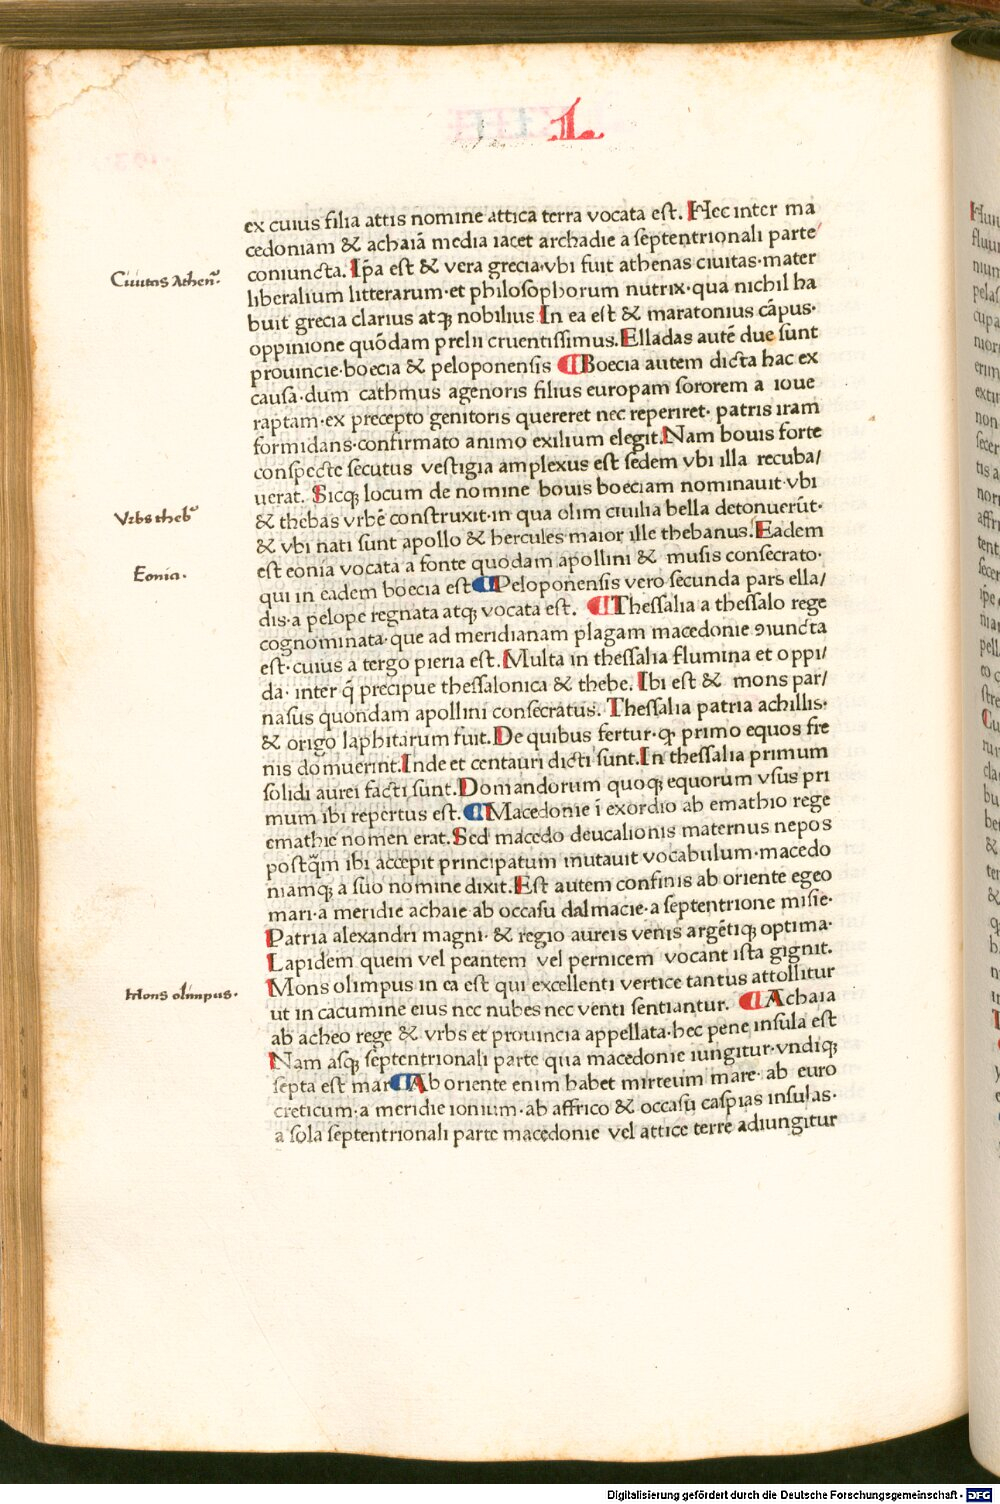 L
ex cuius filia attis nomine attica terra vocata est. Hec inter ma
cedoniam & achaiā media iacet archadie a septentrionali parte
coniuncta. Ip̄a est & vera grecia·vbi fuit athenas ciuitas·mater
Ciuitas Athen⁹.
liberalium litterarum·et philosophorum nutrix·qua nichil ha
buit grecia clarius atqꝫ nobilius In ea est & maratonius cāpus·
oppinione quōdam prelii cruentissimus. Elladas autē due sunt
prouincie·boecia & peloponensis ¶Boecia autem dicta hac ex
causa·dum cathmus agenoris filius europam sororem a ioue
raptam·ex precepto genitoris quereret nec reperiret· patris iram
formidans·confirmato animo exilium elegit. Nam bouis forte
conspecte secutus vestigia amplexus est sedem vbi illa recuba/
uerat. Sicqꝫ locum de nomine bouis boeciam nominauit·vbi
Vrbs theb⁹
& thebas vrbē construxit·in qua olim ciuilia bella detonuerūt·
& vbi nati sunt apollo & hercules maior ille thebanus. Eadem
est eonia vocata a fonte quodam apollini & musis consecrato·
Eonia.
qui in eadem boecia est ¶Peloponensis vero secunda pars ella/
dis·a pelope regnata atqꝫ vocata est. ¶Thessalia a thessalo rege
cognominata·que ad meridianam plagam macedonie ꝯiuncta
est·cuius a tergo pieria est. Multa in thessalia flumina et oppi/
da· inter q̄ precipue thessalonica & thebe. Ibi est & mons par/
nasus quondam apollini consecratus. Thessalia patria achillis·
& origo laphitarum fuit. De quibus fertur·ꝙ primo equos fre
nis domuerint. Inde et centauri dicti sunt. In thessalia primum
solidi aurei facti sunt. Domandorum quoqꝫ equorum vsus pri
mum ibi repertus est. ¶Macedonie ī exordio ab emathio rege
emathie nomen erat. Sed macedo deucalionis maternus nepos
postq̄m ibi accepit principatum mutauit vocabulum·macedo
niamqꝫ a suo nomine dixit. Est autem confinis ab oriente egeo
mari·a meridie achaie·ab occasu dalmacie·a septentrione misie·
Patria alexandri magni· & regio aureis venis argētiqꝫ optima·
Lapidem quem vel peantem vel pernicem vocant ista gignit.
Mons olimpus in ea est qui excellenti vertice tantus attollitur
Mons olimpus.
ut in cacumine eius nec nubes nec venti sentiantur. ¶Achaia
ab acheo rege & vrbs et prouincia appellata·hec pene insula est
Nam absqꝫ septentrionali parte qua macedonie iungitur·vndiqꝫ
septa est mari ¶Ab oriente enim habet mirteum mare· ab euro
creticum·a meridie ionium·ab affrico & occasu caspias insulas·
a sola septentrionali parte macedonie vel attice terre adiungitur
Digitalisierung gefördert durch die Deutsche Forschungsgemeinschaft - DFG